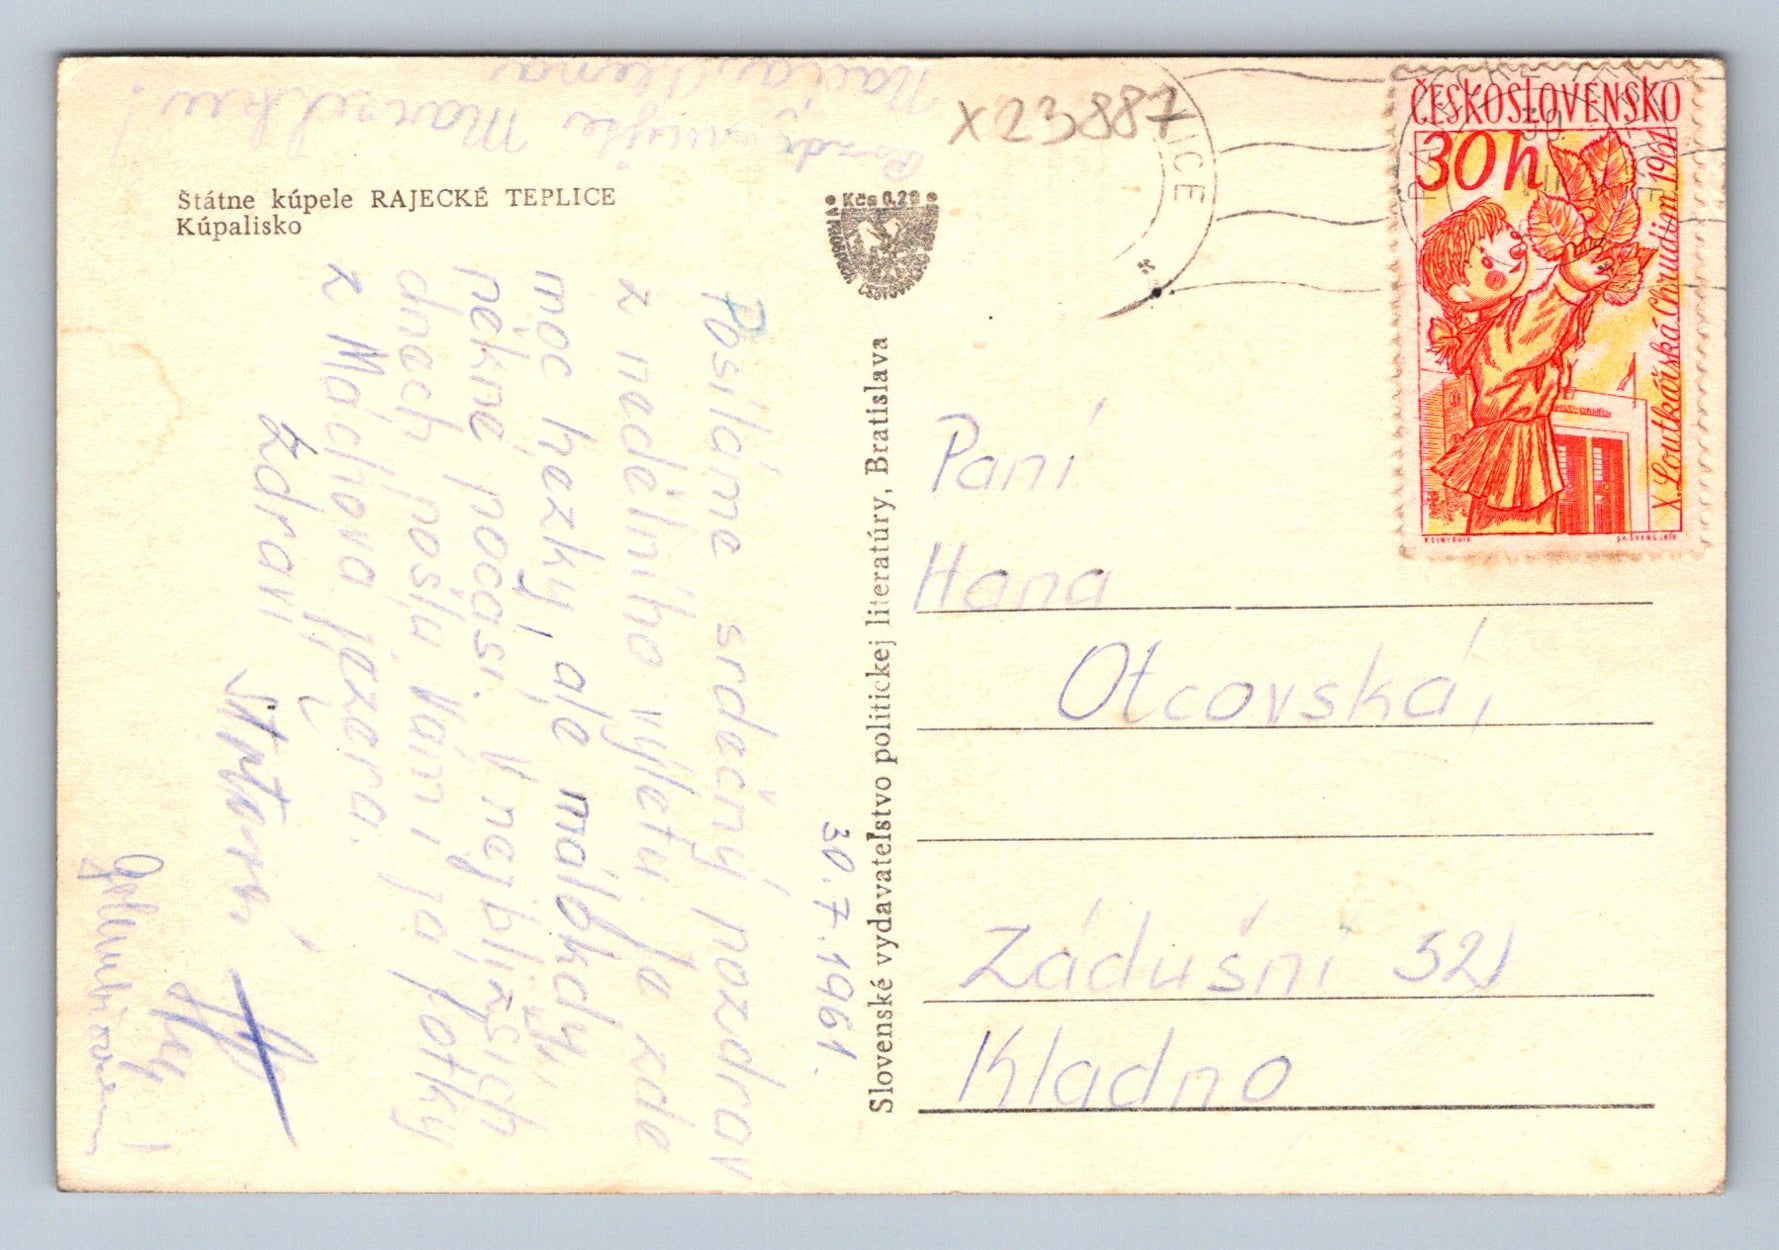 Štátne kúpele RAJECKÉ TEPLICE
Kúpalisko
Posíláme srdečný pozdrav
z nadělního výletu. Je zde
moc hezky, ale málokdy
pěkné počasí. V nejbližších
dnech pošlu Vám i ja fotky
z Máchova jezera.
Zdraví
30.7.1961.
Slovenské vydavateľstvo politickej literatúry, Bratislava
X23887
Kčs 0,20
ICE
ČESKOSLOVENSKO
30h
X. Loutkářská Chrudim 1961
Paní
Hana
Otcovská,
Zádušní
Kladno